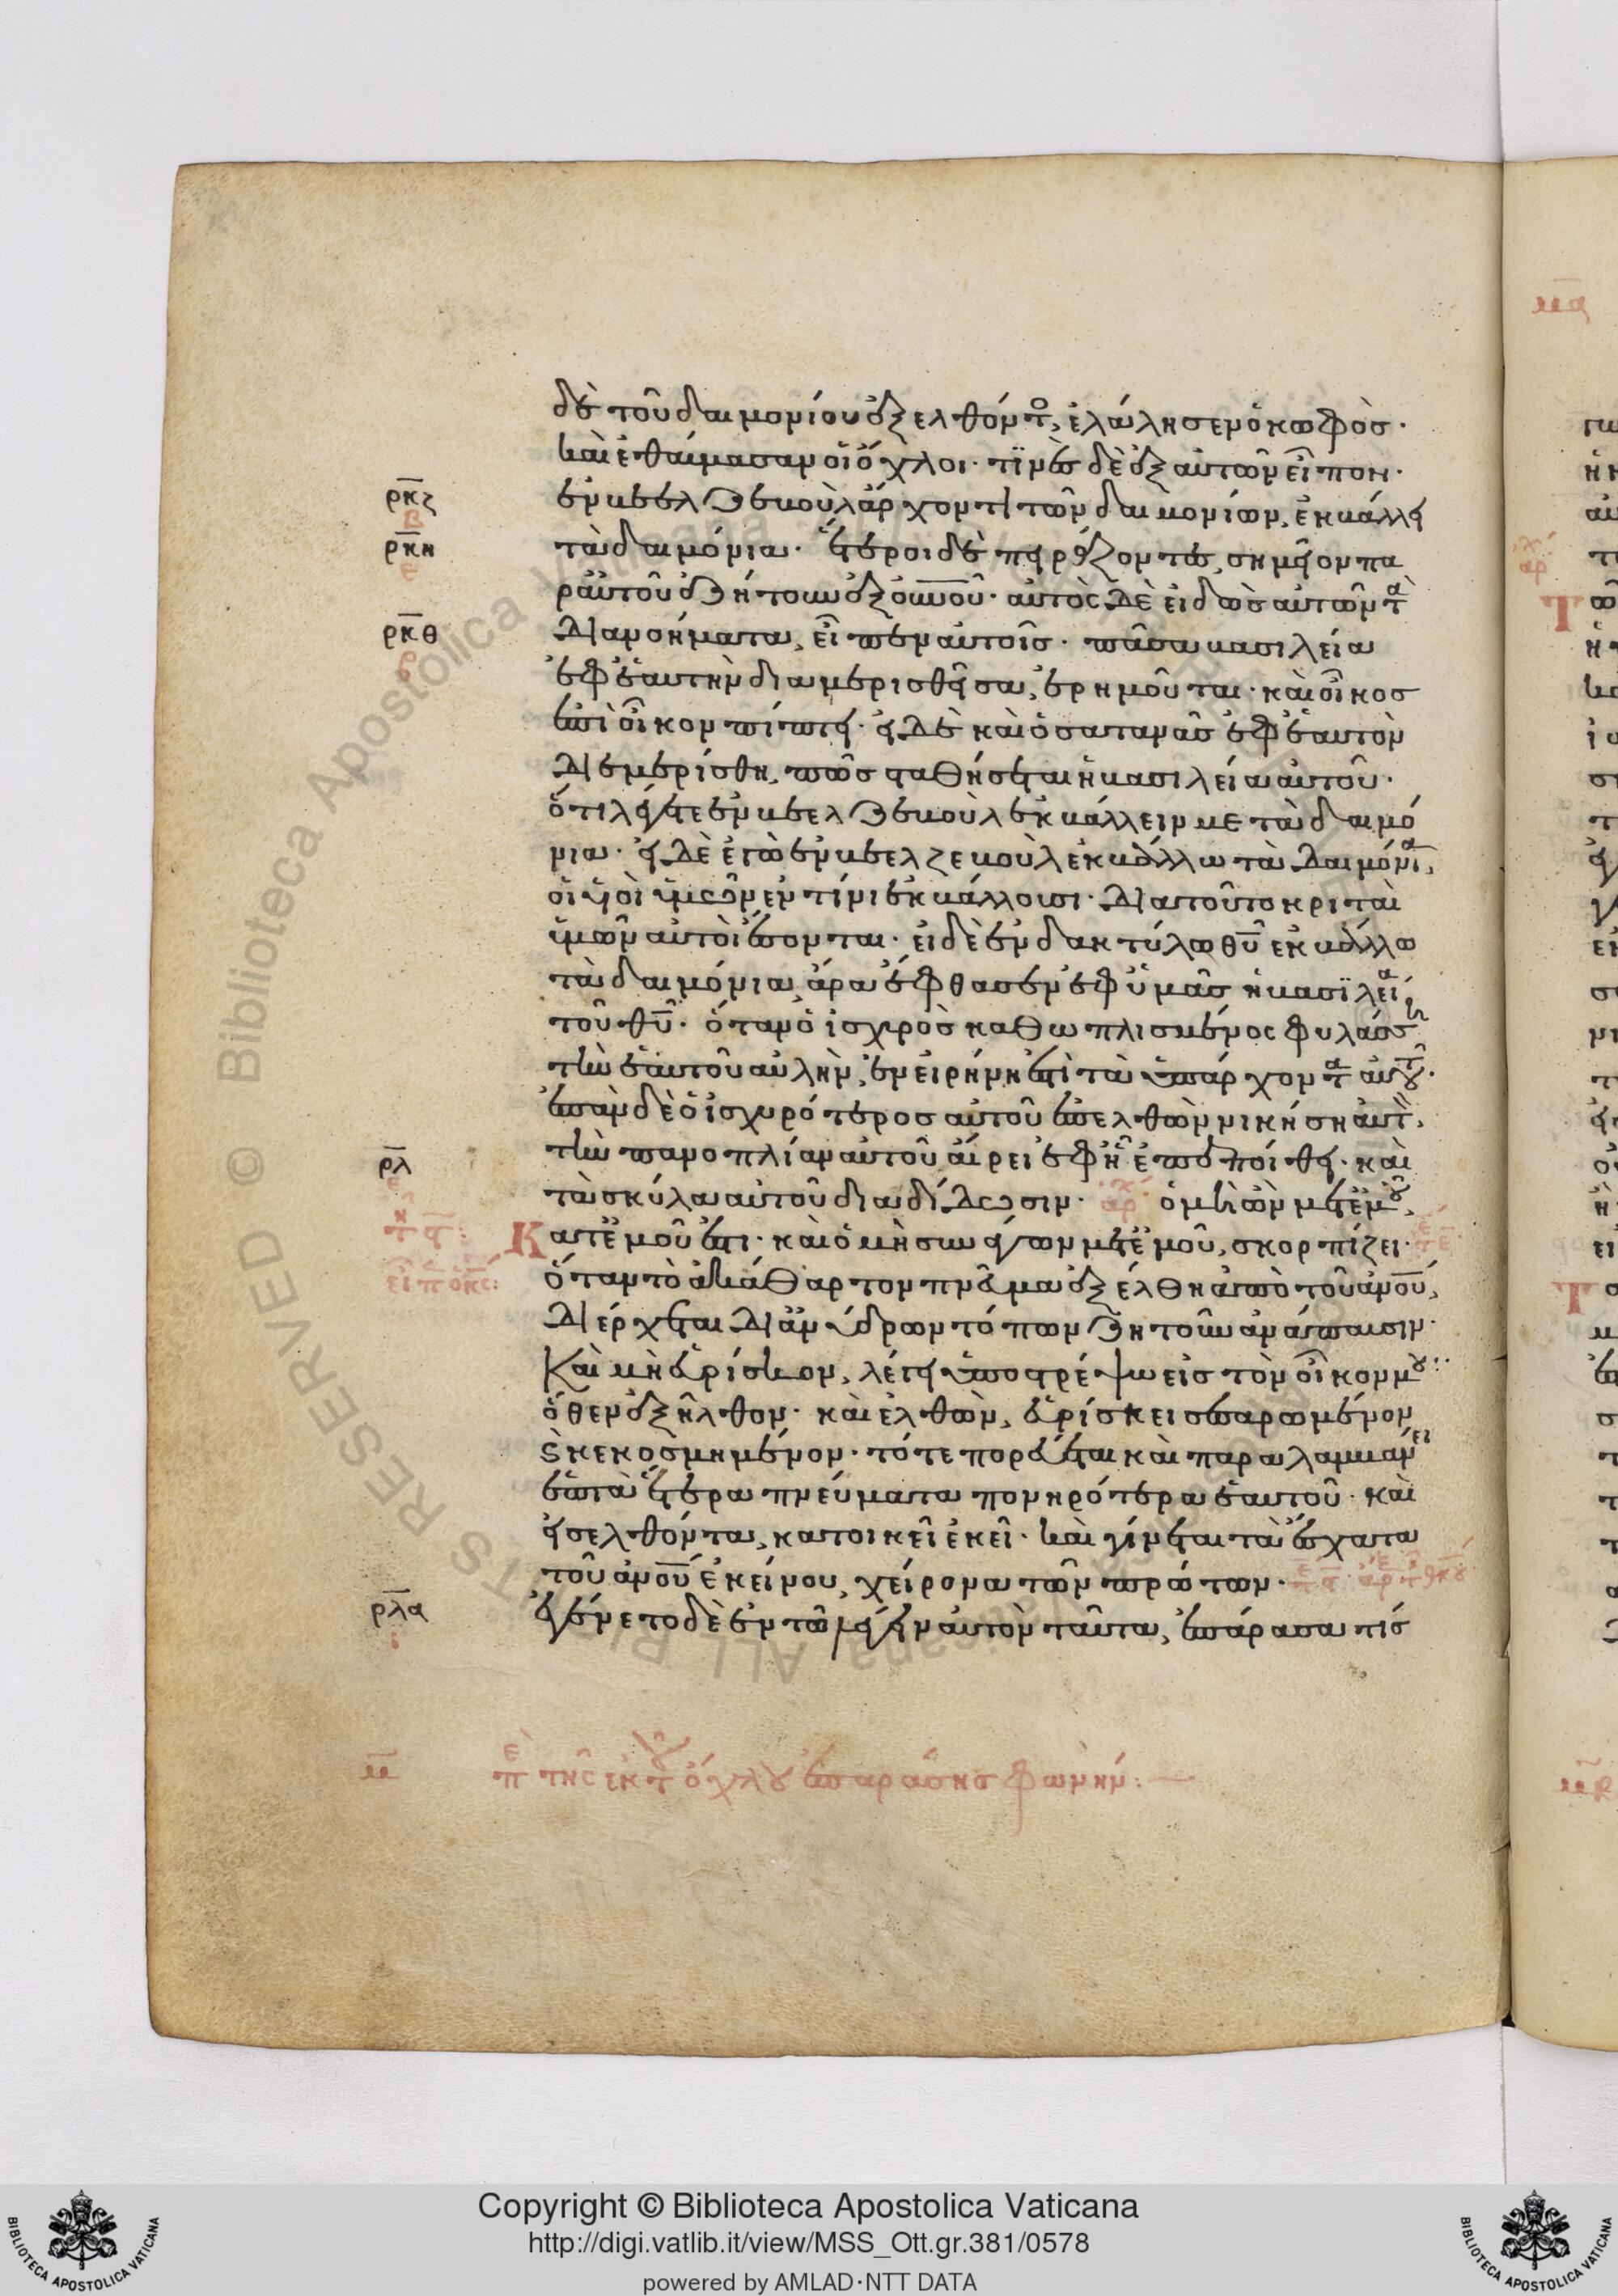 δὲ τοῦ δαιμονίου ἐξελθόντος, ἐλάλησεν ὁ κωφὸσ·
καὶ ἐθαύμασαν οἱ ὄχλοι· τινὲσ δὲ ἐξ αὐτῶν εἶπον·
ρκζ ἐν βεελζεβοὺλ ἄρχοντι τῶν δαιμονίων, ἐκβάλλει
ρκη τὰ δαιμόνια· ἕτεροι δὲ πειράζοντεσ, σημεῖον πα
ραὐτοῦ ἐζήτουν ἐξ οὐνοῦ· αὐτὸς δὲ εἰδὼσ αὐτῶν τὰ
ρκθ διανοήματα, εἶπεν αὐτοῖσ· πᾶσα βασιλεία
ἐφ ἑαυτὴν διαμερισθεῖσα, ἐρημοῦται· καὶ οἶκοσ
ἐπὶ οἶκον πίπτει· εἰ δὲ καὶ ὁ σατανᾶσ ἐφ ἑαυτὸν
διεμερίσθη, πῶσ σταθήσεται ἡ βασιλεία αὐτοῦ·
ὅτι λέγετε ἐν βεελζεβοὺλ ἐκβάλλειν με τὰ δαιμό
νια· εἰ δὲ ἐγὼ ἐν βεελζεβοὺλ ἐκβάλλω τὰ δαιμόνια,
οἱ υἱοὶ ὑμῶν ἐν τίνι ἐκβάλλουσι· διατοῦτο κριταὶ
ὑμῶν αὐτοὶ ἔσονται· εἰ δὲ ἐν δακτύλω θυ ἐκβάλλω
τὰ δαιμόνια, ἄρα ἔφθασεν ἐφ ὑμᾶσ ἡ βασιλεία
τοῦ θυ· ὅταν ὁ ἰσχυρὸσ καθωπλισμένος φυλάσση
τὴν ἑαυτοῦ αὐλὴν, ἐν εἰρήνη ἐστὶ τὰ ὑπάρχοντα αὐτοῦ·
ἐπὰν δὲ ὁ ἰσχυρότεροσ αὐτοῦ ἐπελθὼν νικήση αὐτὸν,
ρλ τὴν πανοπλίαν αὐτοῦ αἴρει ἐφ ἧ ἐπεποίθει· καὶ
τὰ σκύλα αὐτοῦ διαδίδωσιν· αρχ ὁ μὴ ὢν μετἐμοῦ,
κατἐμοῦ ἐστι· καὶ ὁ μὴ συνάγων μετἐμοῦ, σκορπίζει·
εἶπ ὁ κς: ὅταν τὸ ἀκάθαρτον πνεῦμα ἐξέλθη ἀπὸ τοῦ ἀνου,
διέρχεται δι ἀνύδρων τόπων ζητοῦν ἀνάπαυσιν·
καὶ μὴ εὑρίσκον, λέγει ὑποστρέψω εἰσ τὸν οἶκον μου·
ὅθεν ἐξῆλθον· καὶ ἐλθὼν, εὑρίσκει σεσαρωμένον
κεκοσμημένον· τότε πορεύεται καὶ παραλαμβάνει
ἑπτὰ ἕτερα πνεύματα πονηρότερα ἑαυτοῦ· καὶ
εἰσελθόντα, κατοικεῖ ἐκεῖ· καὶ γίνεται τὰ ἔσχατα
τοῦ ἀνου ἐκείνου, χείρονα τῶν πρώτων·
ρλα ἐγένετο δὲ ἐν τῶ λέγειν αὐτὸν ταῦτα, ἐπάρασα τίσ
μ πε τῆς ἐκ τοῦ ὄχλου ἐπαράσησ φωνήν:
Copyright © Biblioteca Apostolica Vaticana
http://digi.vatlib.it/view/MSS_Ott.gr.381/0578
powered by AMLAD·NTT DATA